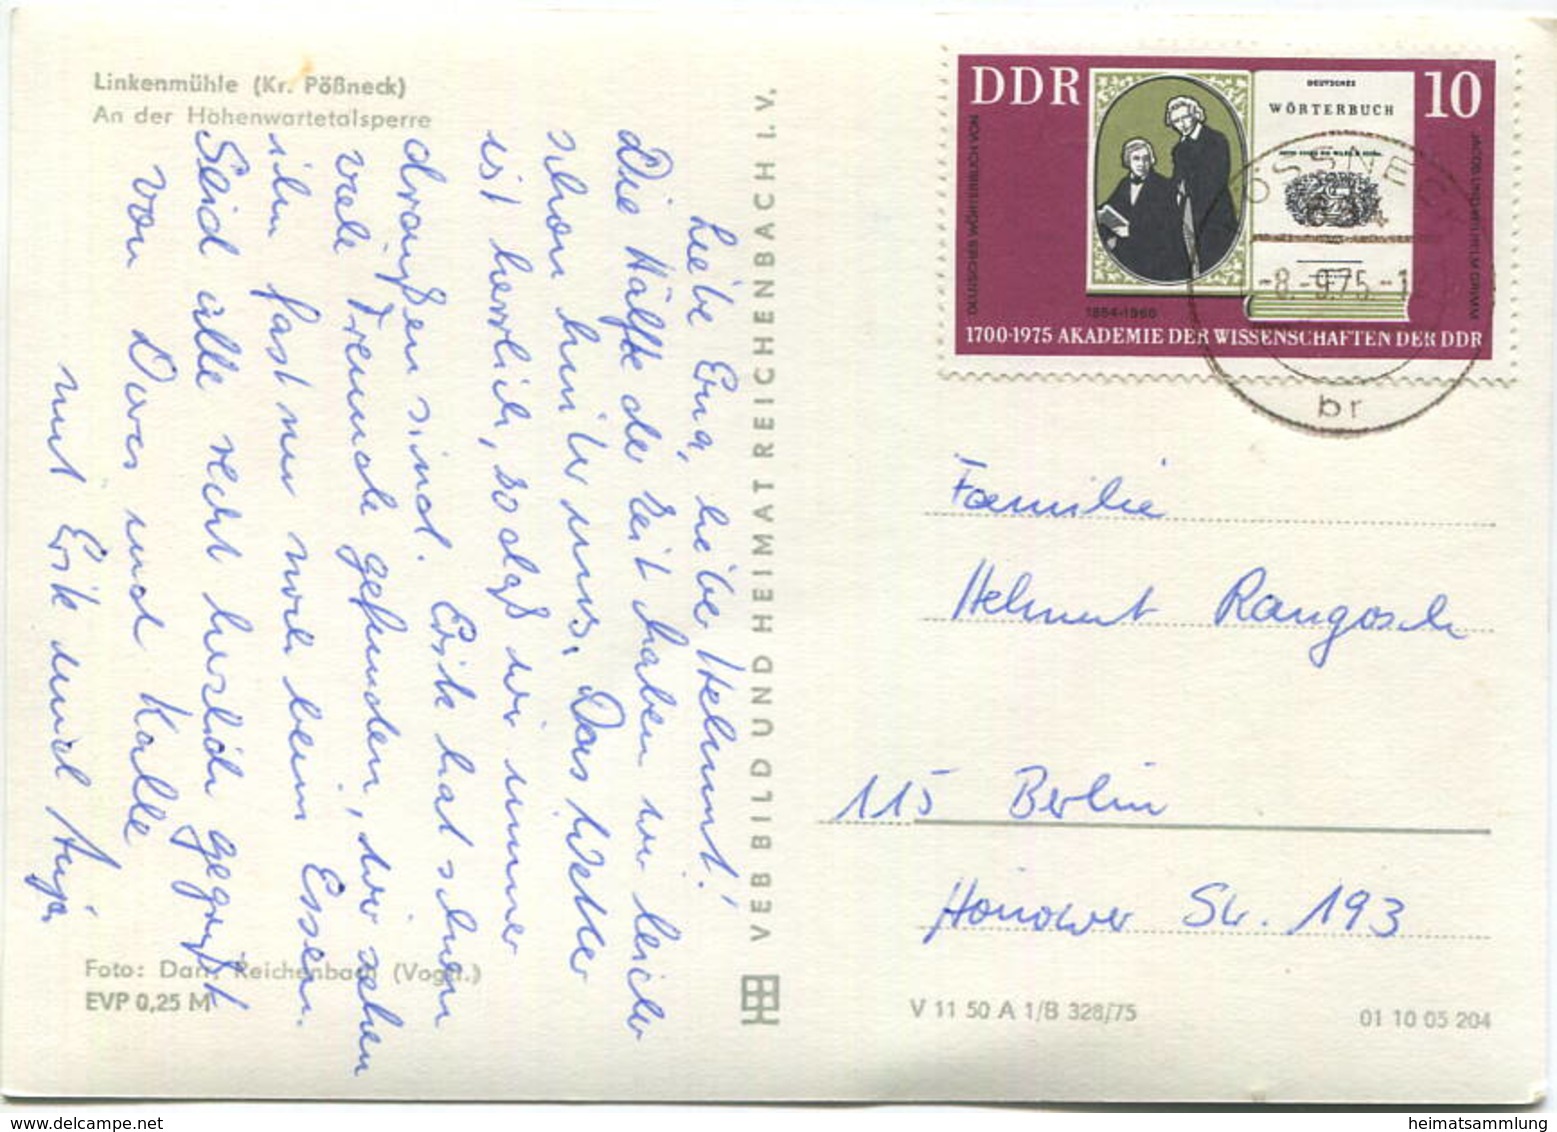 Linkenmühle (Kr. Pößneck)
An der Höhenwartetalsperre
Liebe Eva, lieber Helmut!
Die Hälfte der Zeit haben wir leider
schon hinter uns. Das Wetter
ist herrlich, so daß wir immer
draußen sind. Erik hat schon
viele Freunde gefunden, wir sehen
ihn fast nur noch beim Essen.
Seid alle recht herzlich gegrüßt
von Doris und Kalle
mit Erik und
Foto: Darr, Reichenbach (Vogtl.)
EVP 0,25 M
VEB BILD UND HEIMAT REICHENBACH I. V.
DDR
10
DEUTSCHES
WÖRTERBUCH
DEUTSCHES WÖRTERBUCH VON
JACOB UND WILHELM GRIMM
1854-1960
1700-1975 AKADEMIE DER WISSENSCHAFTEN DER DDR
PÖSSNECK
-8.-9.75.-1
br
Familie
Helmut Rangosch
115 Berlin
Hönower Str. 193
V 11 50 A 1/B 328/75
01 10 05 204
heimatsammlung